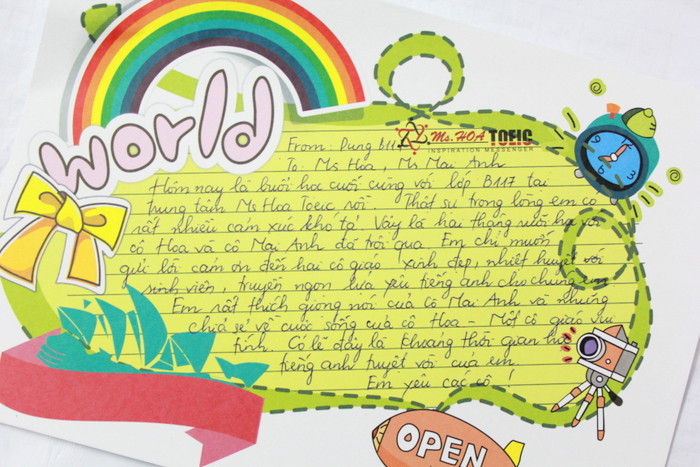 world
From: Dung B117
Ms. HOA TOEIC
INSPIRATION MESSENGER
To: Ms Hoa, Ms Mai Anh
Hôm nay là buổi học cuối cùng với lớp B117 tại
trung tâm Ms Hoa Toeic rồi. Thật sự trong lòng em có
rất nhiều cảm xúc khó tả. Vậy là hai tháng rưỡi học với
cô Hoa và cô Mai Anh đã trôi qua. Em chỉ muốn
gửi lời cám ơn đến hai cô giáo xinh đẹp, nhiệt huyết với
sinh viên, truyền ngọn lửa yêu tiếng anh cho chúng em
Em rất thích giọng nói của cô Mai Anh và những
chia sẻ về cuộc sống của cô Hoa - Một cô giáo vui
tính. Có lẽ đây là khoảng thời gian học
tiếng anh tuyệt vời của em.
Em yêu các cô!
OPEN